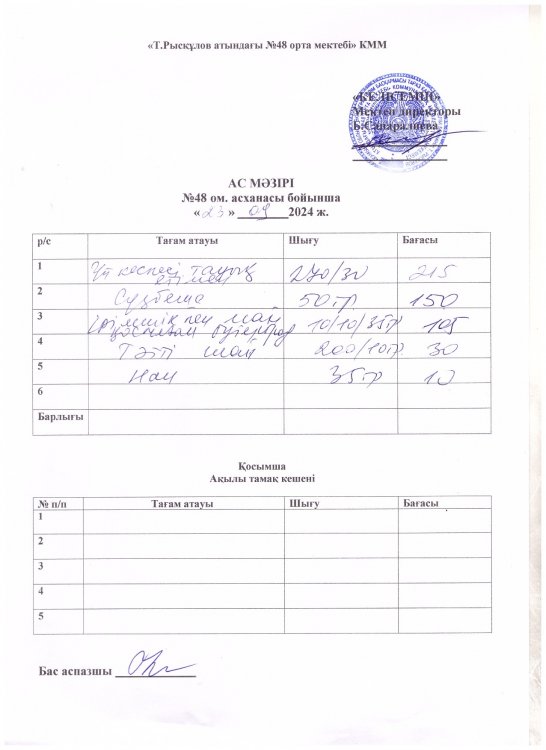 «Т.Рысқұлов атындағы №48 орта мектебі» КММ
«КЕЛІСЕМІН»
Мектеп директоры
Б.Сапаралиева
АС МӘЗІРІ
№48 ом. асханасы бойынша
«23» 09 2024 ж.
р/с Тағам атауы Шығу Бағасы
1 Үй кеспесі тауық етімен 270/30 215
2 Сүзбеше 50гр 150
3 Ірімшік пен май қосылған бутерброд 10/10/35гр 105
4 Тәтті шай 200/10гр 30
5 Нан 35гр 10
6
Барлығы
Қосымша
Ақылы тамақ кешені
№ п/п Тағам атауы Шығу Бағасы
1
2
3
4
5
Бас аспазшы